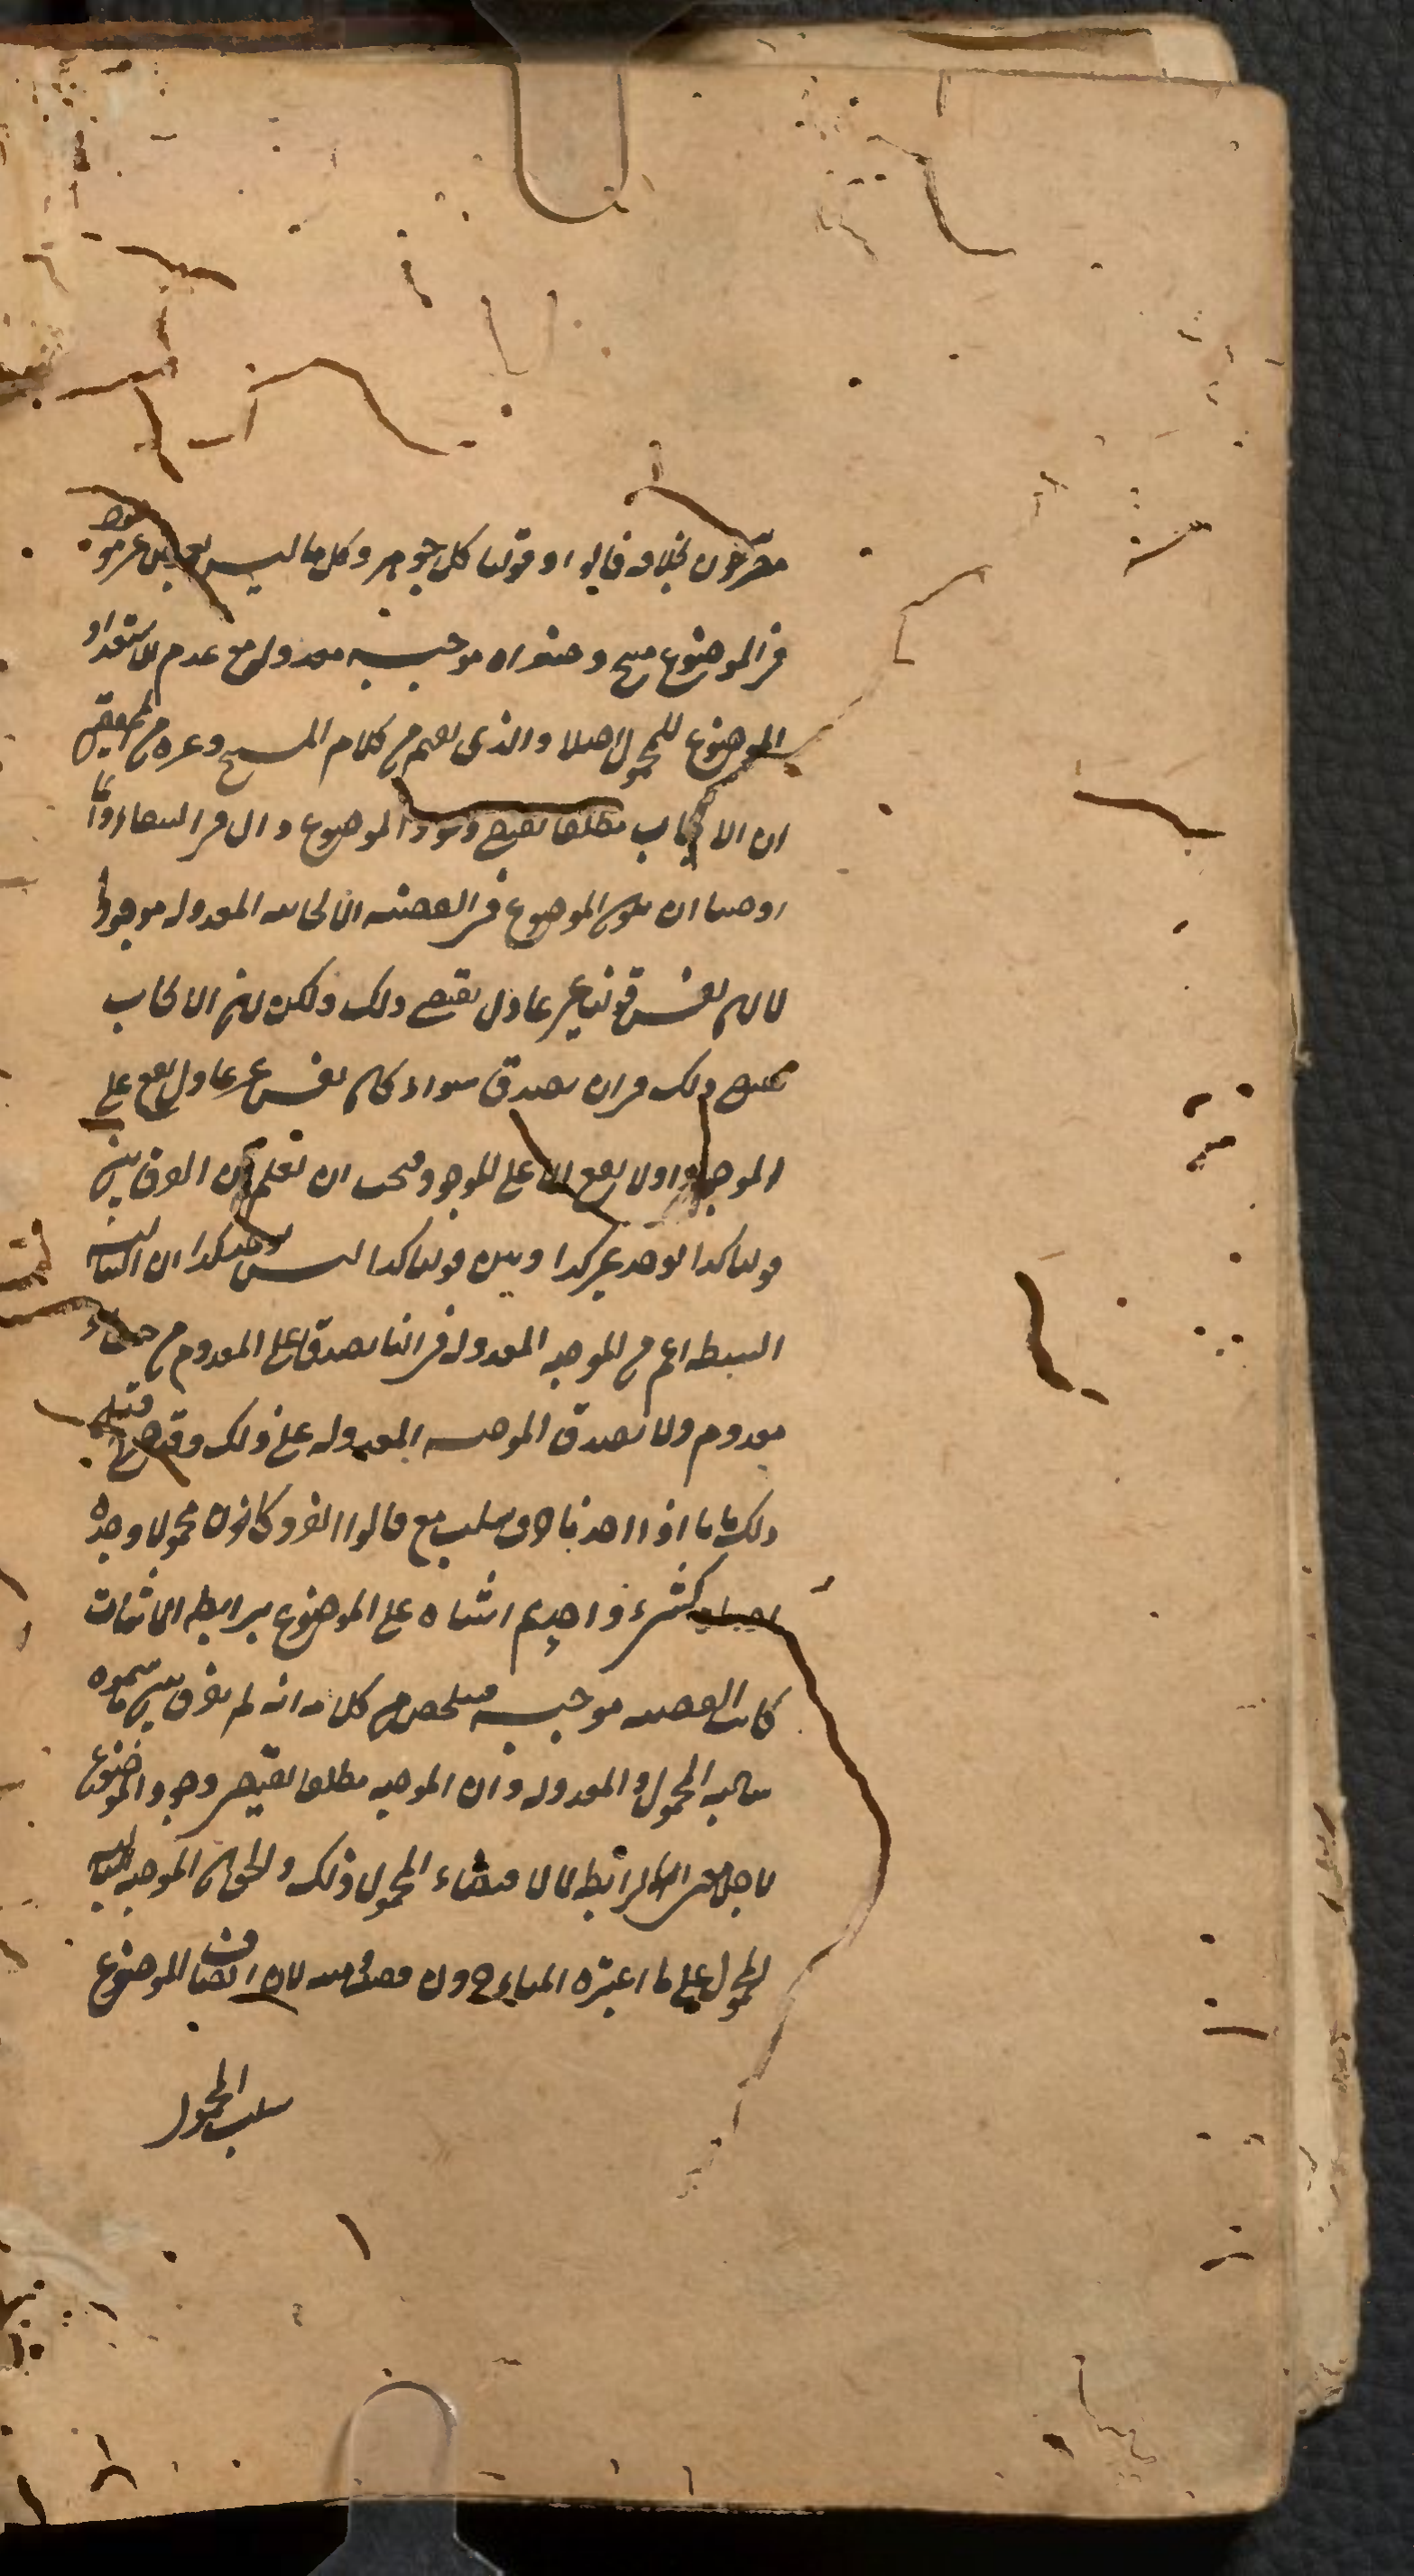 معترفون بخلافه قالوا وقولنا كل جوهر وكل ما ليس بعرض غير موجود
في الموضوع موجبة معدولة مع عدم استعداد
الموضوع للمحمول اصلا والذي يفهم من كلام الشيخ وغيره من المحققين
ان الايجاب مطلقا يقتضي وجود الموضوع قال في الشفاء وانما
اوجبنا ان يكون الموضوع في القضية الايجابية المعدولة موجودا
لا لان نفس قولنا غير عادل يقتضي ذلك ولكن لان الايجاب
يقتضي ذلك في ان يصدق سواء كان نفس غير عادل يقع على
الموجود او لا يقع الا على الموجود فيجب ان تعلم ان الفرق بين
قولنا كذا يوجد غير كذا وبين قولنا كذا ليس يوجد كذا ان السالبة
البسيطة اعم من الموجبة المعدولة في انها تصدق على المعدوم من حيث هو
معدوم ولا تصدق الموجبة المعدولة على ذلك وقد قيل
ذلك فاذا اخذنا حرف سلب مع قالوا انفرد كان محمولا وحده
كشيء واحد ثم اثبتناه على الموضوع برابطة الاثبات
كانت القضية موجبة فتلخص من كلامه انه لم يفرق بين ما سموه
سالبة المحمول والمعدولة وان الموجبة مطلقا تقتضي وجود الموضوع
لاجل الرابطة لا لاقتضاء المحمول ذلك والحق ان الموجبة السالبة
المحمول على ما اعتبره المتاخرون لان اتصاف الموضوع
سلب المحمول